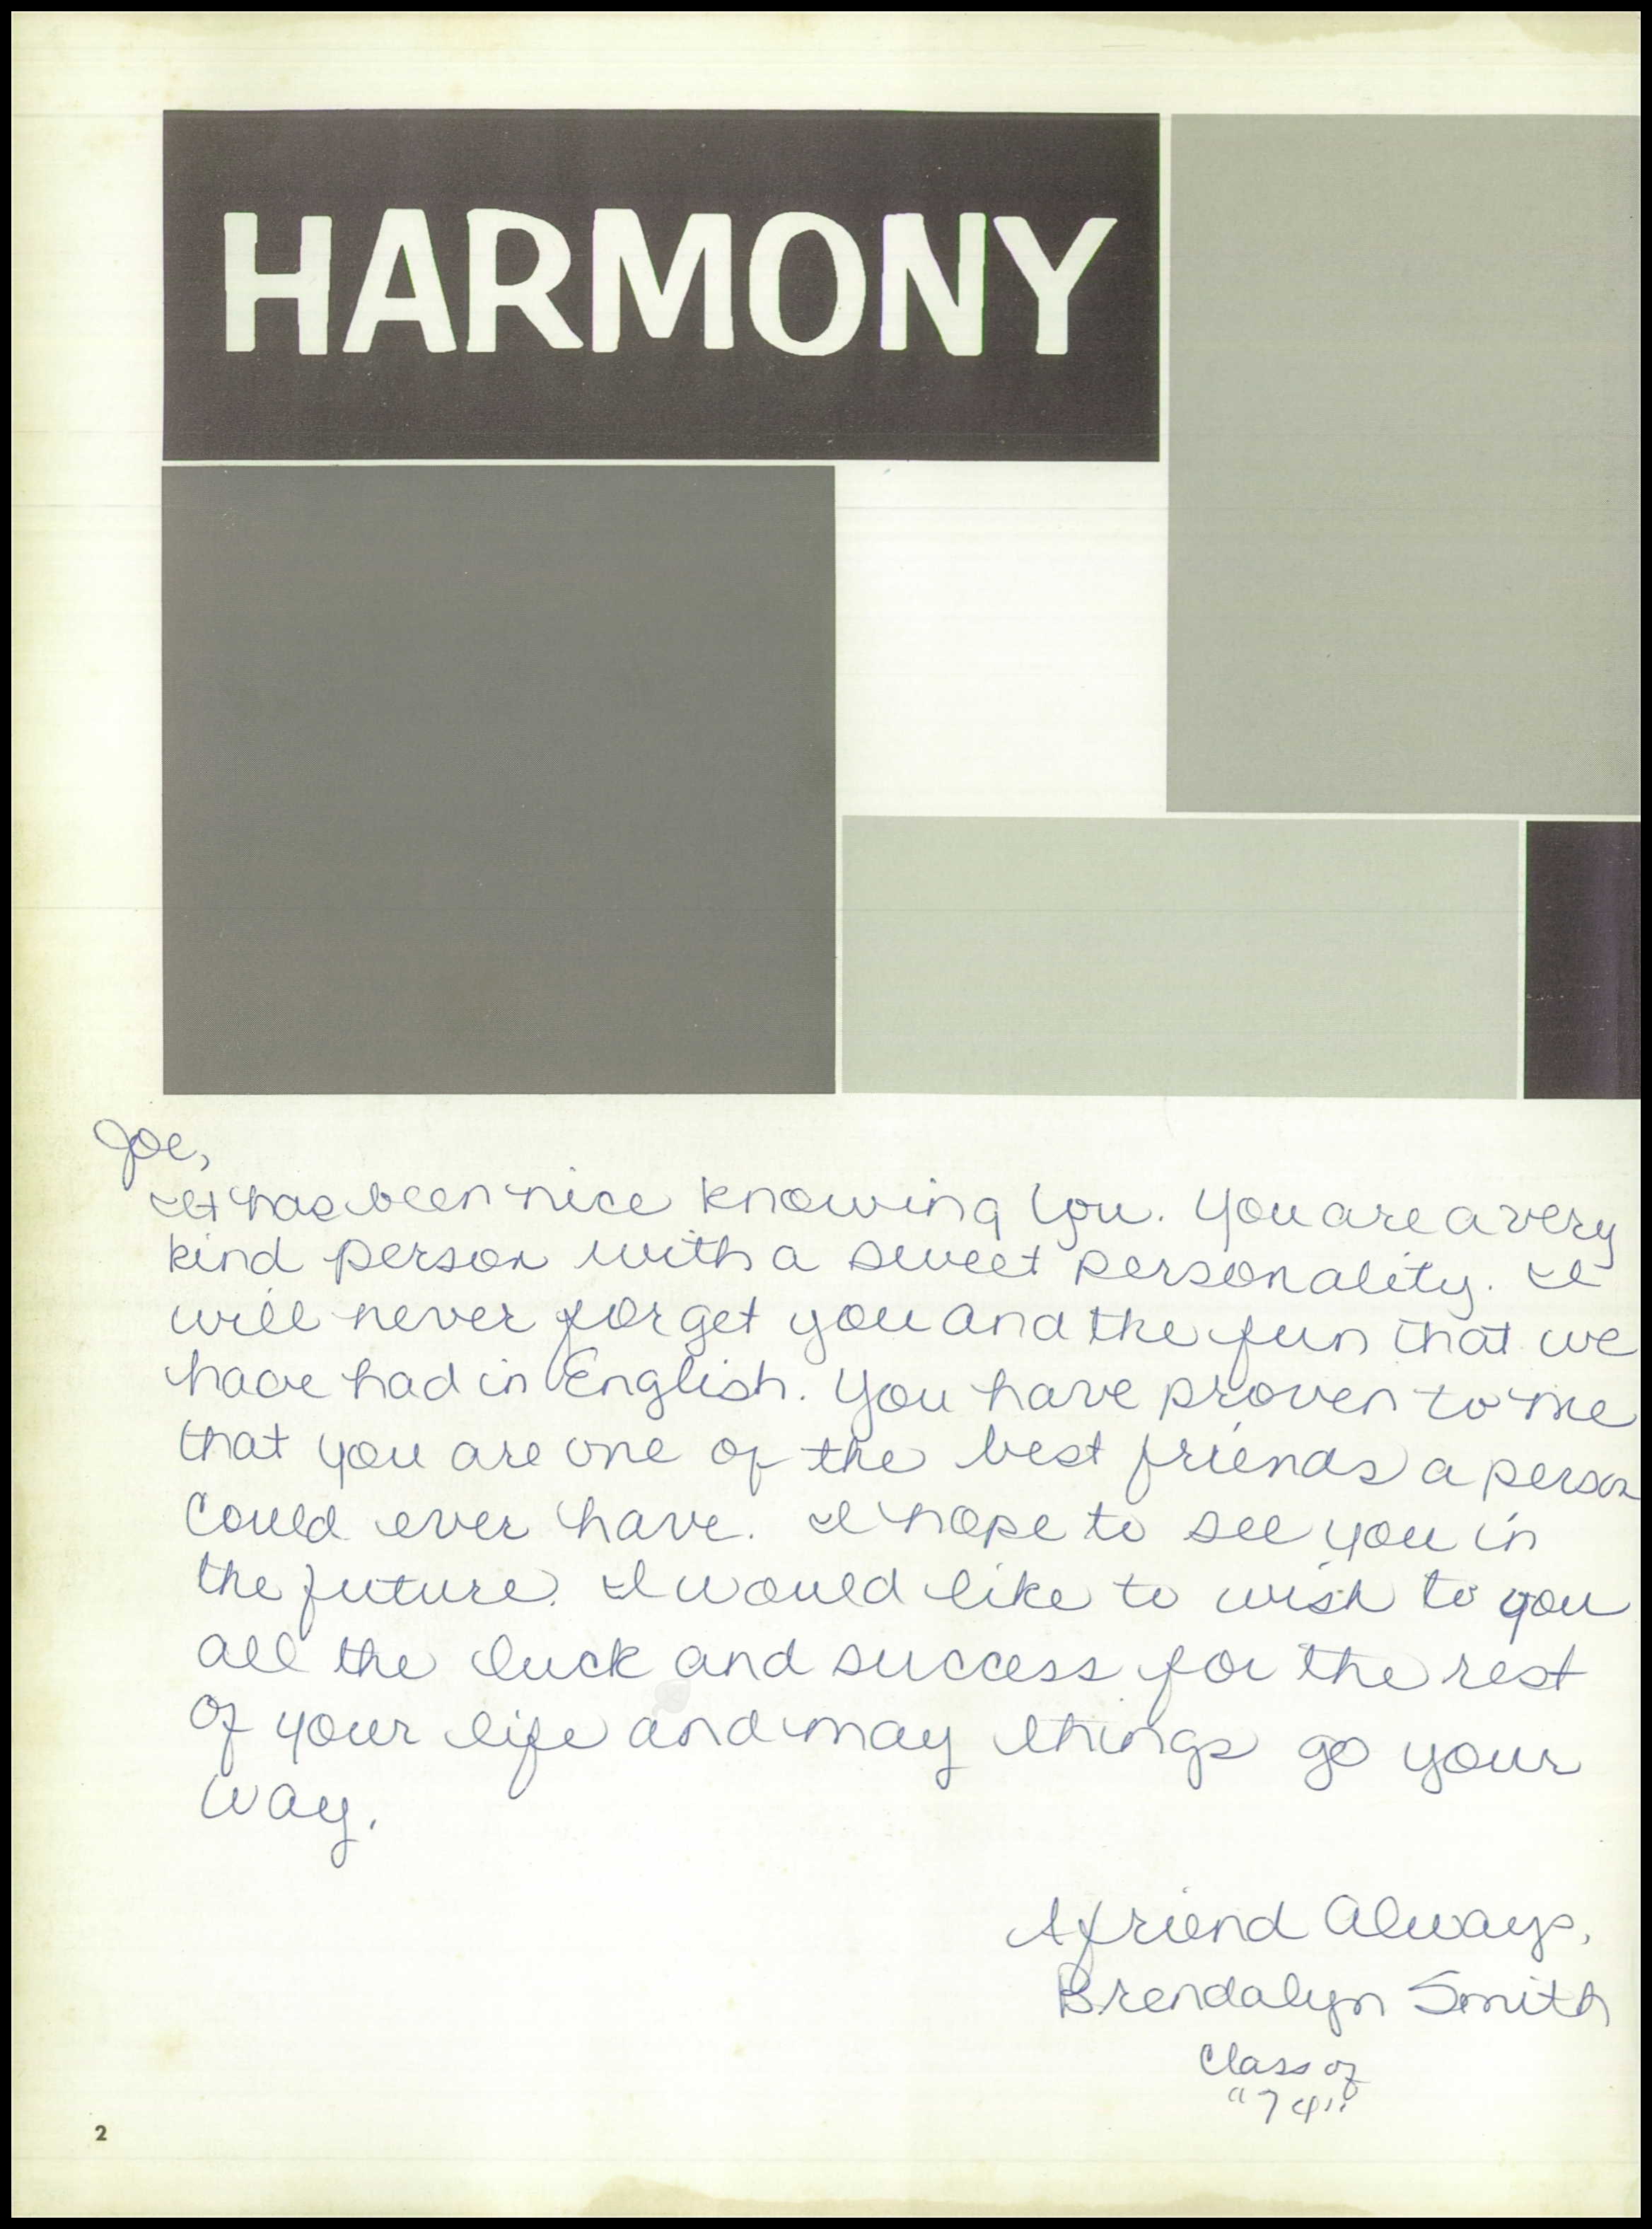 HARMONY
Joe,
It has been nice knowing you. You are a very
kind person with a sweet personality. I
will never forget you and the fun that we
have had in English. You have proven to me
that you are one of the best friends a person
could ever have. I hope to see you in
the future. I would like to wish to you
all the luck and success for the rest
of your life and may things go your
way.
A friend Always,
Brendalyn Smith
Class of
"74"
2